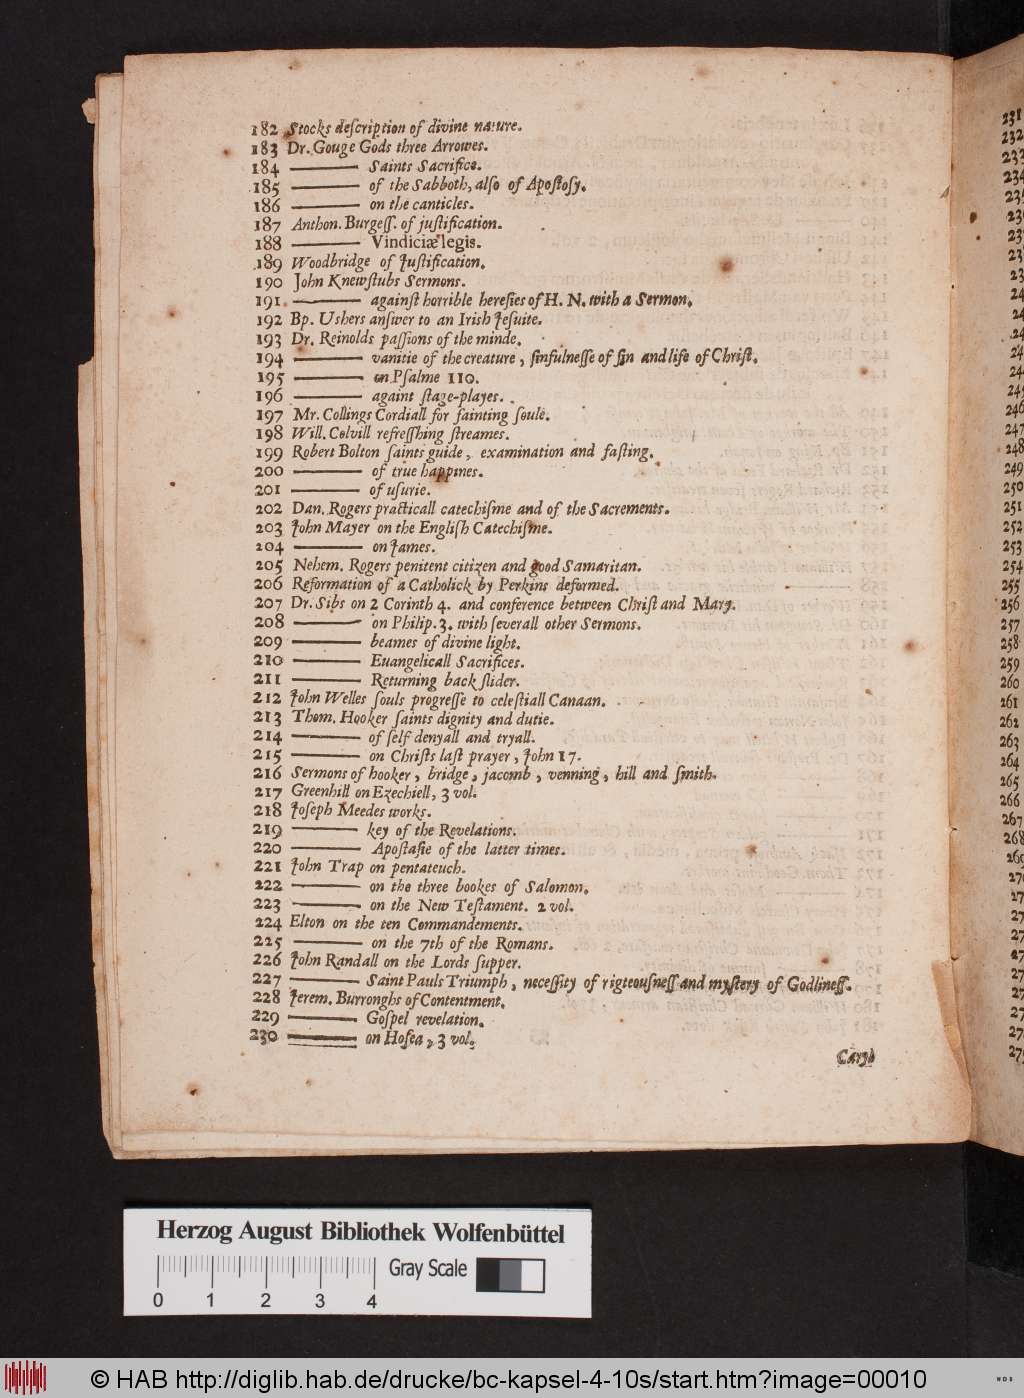 182 Stocks deſcription of divine nature.
183 Dr. Gouge Gods three Arrowes.
184 ——— Saints Sacrifice.
185 ——— of the Sabboth, alſo of Apoſtoſy.
186 ——— on the canticles.
187 Anthon. Burgeſſ. of juſtification.
188 ——— Vindiciæ legis.
189 Woodbridge of Juſtification.
190 John Knewſtubs Sermons.
191 ——— againſt horrible hereſies of H. N. with a Sermon.
192 Bp. Ushers anſwer to an Irish Jeſuite.
193 Dr. Reinolds paſſions of the minde.
194 ——— vanitie of the creature, ſinfulneſſe of ſin and life of Chriſt.
195 ——— on Pſalme 110.
196 ——— againt ſtage-playes.
197 Mr. Collings Cordiall for fainting ſoule.
198 Will. Colvill refreſhing ſtreames.
199 Robert Bolton ſaints guide, examination and faſting.
200 ——— of true happines.
201 ——— of uſurie.
202 Dan. Rogers practicall catechiſme and of the Sacrements.
203 John Mayer on the Engliſh Catechiſme.
204 ——— on James.
205 Nehem. Rogers penitent citizen and good Samaritan.
206 Reformation of a Catholick by Perkins deformed.
207 Dr. Sibs on 2 Corinth 4. and conference between Chriſt and Mary.
208 ——— on Philip. 3. with ſeverall other Sermons.
209 ——— beames of divine light.
210 ——— Euangelicall Sacrifices.
211 ——— Returning back ſlider.
212 John Welles ſouls progreſſe to celeſtiall Canaan.
213 Thom. Hooker ſaints dignity and dutie.
214 ——— of ſelf denyall and tryall.
215 ——— on Chriſts laſt prayer, John 17.
216 Sermons of hooker, bridge, jacomb, venning, hill and ſmith.
217 Greenhill on Ezechiell, 3 vol.
218 Joſeph Meedes works.
219 ——— key of the Revelations.
220 ——— Apoſtaſie of the latter times.
221 John Trap on pentateuch.
222 ——— on the three bookes of Salomon.
223 ——— on the New Teſtament. 2 vol.
224 Elton on the ten Commandements.
225 ——— on the 7th of the Romans.
226 John Randall on the Lords ſupper.
227 ——— Saint Pauls Triumph, neceſſity of rigteouſneſſ and myſtery of Godlineſſ.
228 Jerem. Burronghs of Contentment.
229 ——— Goſpel revelation.
230 ——— on Hoſea, 3 vol.
Caryl
231
232
233
234
246
247
248
249
250
251
252
253
254
255
256
257
258
259
260
261
262
263
264
265
266
267
268
269
Herzog August Bibliothek Wolfenbüttel
Gray Scale
0 1 2 3 4
© HAB http://diglib.hab.de/drucke/bc-kapsel-4-10s/start.htm?image=00010